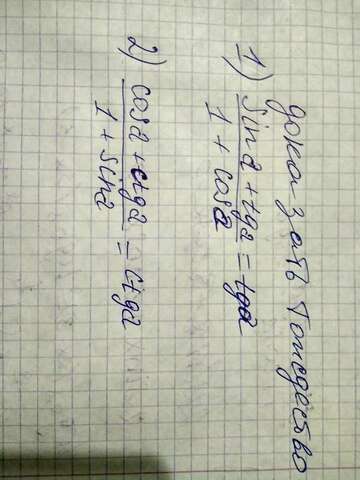 доказать тождество
1) sin2 + tg2 / 1 + cos2 = tg2
2) cos2 + ctg2 / 1 + sin2 = ctg2